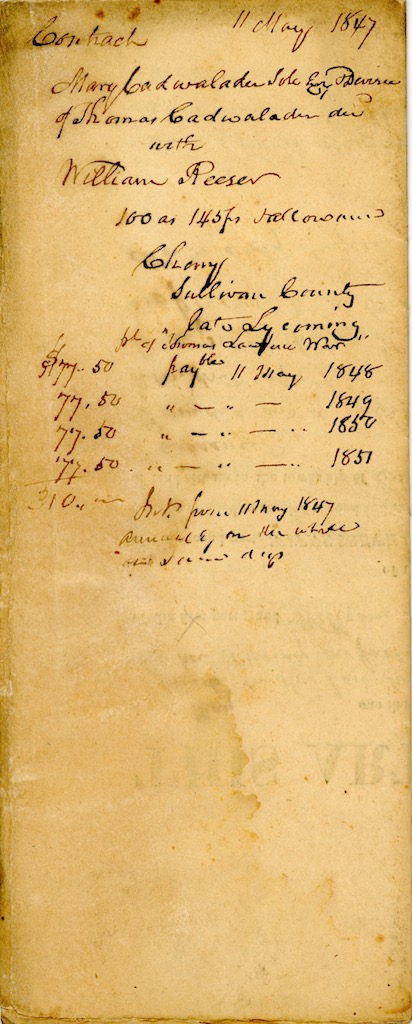 Contract 11 May 1847
Mary Cadwalader Sole Exx & Devisee
of Thomas Cadwalader decd
with
William Reeser
100 as 145 ps & allowance
Cherry
Sullivan County
late Lycoming
pt of Thomas War
$77.50 payble 11 May 1848
77.50 " — " — 1849
77.50 " — " — " 1850
77.50 " — " — " 1851
310,,
Int from 11 May 1847
annually on the whole
same days